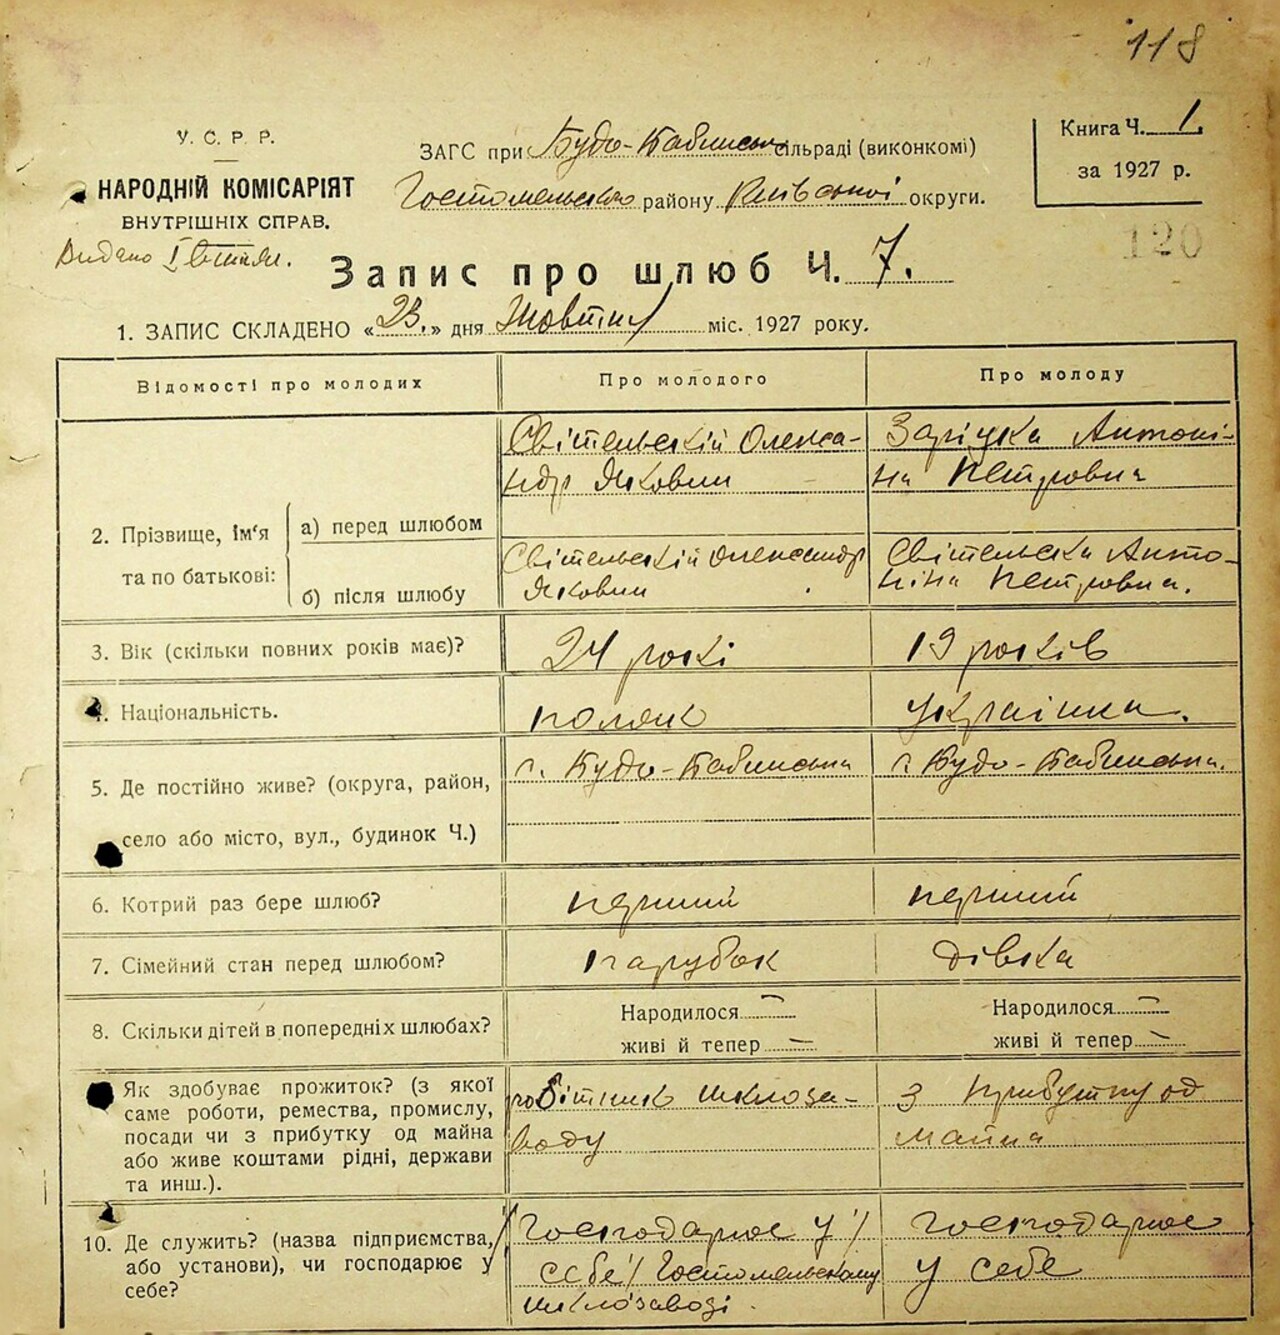 118
У. С. Р. Р.
НАРОДНІЙ КОМІСАРІЯТ
ВНУТРІШНІХ СПРАВ.
Видано
ЗАГС при Будо-Бабинськ сільраді (виконкомі)
Гостомельського району Київської округи.
Книга Ч. 1.
за 1927 р.
120
Запис про шлюб Ч. 7.
1. ЗАПИС СКЛАДЕНО «23.» дня Жовтня міс. 1927 року.
Відомості про молодих
Про молодого
Про молоду
2. Прізвище, ім'я та по батькові:
а) перед шлюбом
Світельській Олекса-
ндр Якович
Заріцка Антоні-
на Петровна
б) після шлюбу
Світельскій Олександр
Якович
Світельска Анто-
ніна Петровна.
3. Вік (скільки повних років має)?
24 рокі
19 років
4. Національність.
поляк
Українка.
5. Де постійно живе? (округа, район,
село або місто, вул., будинок Ч.)
с. Будо-Бабинська
с. Будо-Бабинська.
6. Котрий раз бере шлюб?
перший
перший
7. Сімейний стан перед шлюбом?
парубок
дівка
8. Скільки дітей в попередніх шлюбах?
Народилося —
живі й тепер —
Народилося —
живі й тепер —
Як здобуває прожиток? (з якої
саме роботи, ремества, промислу,
посади чи з прибутку од майна
або живе коштами рідні, держави
та инш.).
робітник шклоза-
воду
з прибутку од
майна
10. Де служить? (назва підприємства,
або установи), чи господарює у
себе?
/Господарює у/
себе/ Гостомельскому
шклозаводі.
господарює
у себе